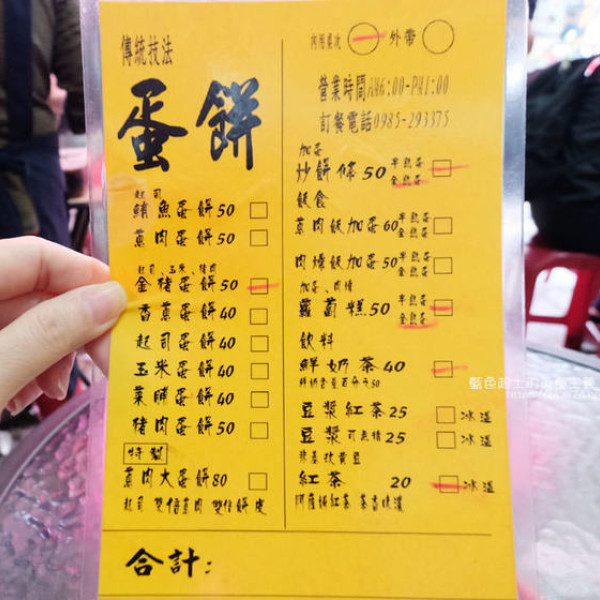 傳統技法
蛋餅
起司
鮪魚蛋餅50
蔥肉蛋餅50
起司、玉米、豬肉
金豬蛋餅50
香蔥蛋餅40
起司蛋餅40
玉米蛋餅40
菜脯蛋餅40
豬肉蛋餅50
特製
蔥肉大蛋餅80
起司 雙倍蔥肉 雙倍餅皮
內用桌次 外帶
營業時間AM6:00-PM1:00
訂餐電話0985-293375
加蛋
炒餅條50 半熟蛋
全熟蛋
飯食
蔥肉飯加蛋60 半熟蛋
全熟蛋
肉燥飯加蛋50 半熟蛋
全熟蛋
加蛋、肉燥
蘿蔔糕50 半熟蛋
全熟蛋
飲料
鮮奶茶40
豆漿紅茶25 冰溫
豆漿可無糖25 冰溫
非基改黃豆
紅茶 20 冰溫
阿薩姆紅茶 茶香味濃
合計: